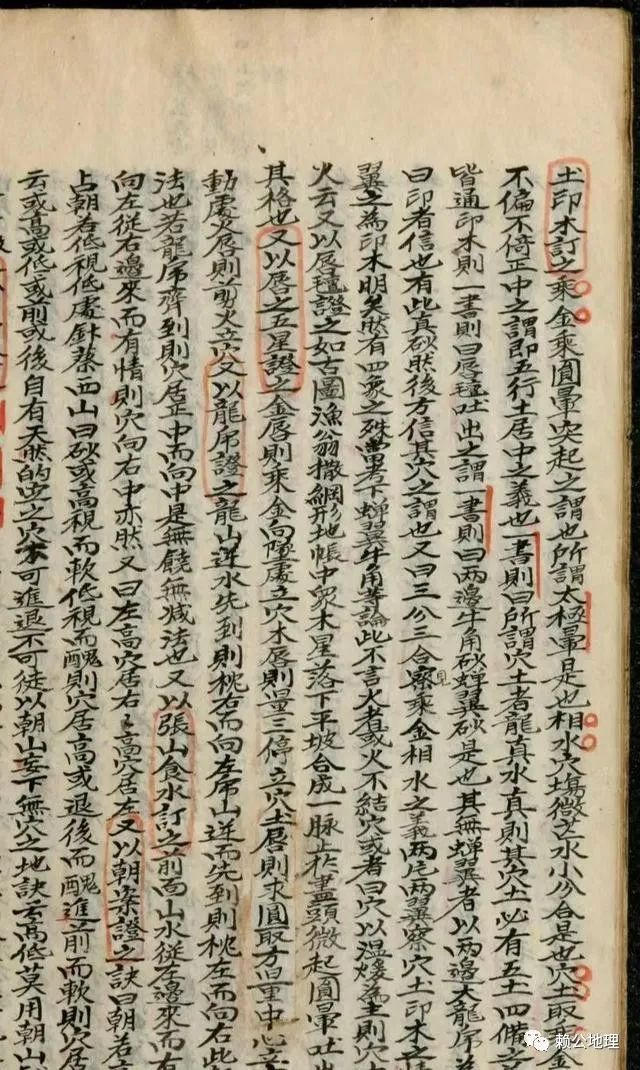 土印木訂之乘金乘圓暈突起之謂也所謂太極暈是也相水穴塲微茫水小分合是也穴土取
不偏不倚正中之謂即五行土居中之義也一書則曰所謂穴土者龍真水真則其穴土必有五土四備之
皆通印木則一書則曰唇氊吐出之謂一書則曰两邊牛角砂蟬翼砂是也其無蟬翼者以两邊大龍虎
曰印者信也有此真砂然後方信其穴之謂也又曰三分三合察乘金相水之義两片两翼察穴土印木之
翼之為印木明矣然有四象之殊當考下蟬翼牛角等論此不言火者或火不結穴或者曰穴以温煖為主則穴
火云又以唇氊證之如古圖漁翁撒網形地帳中衆木星落下平坡合成一脉止於盡頭微起圓暈吐
其格也又以唇之五星證之金唇則乘金向墜處立穴木唇則量三停立穴土唇則求圓取方旧重中心立
動處火唇則剪火立穴又以龍虎證之龍山逆水先到則枕右而向左虎山逆而先到則枕左而向右此
法也若龍虎齊到則穴居正中而向中是無饒無减法也又以張山食水訂之前面山水従左邊來而有
向左従右邊來而有情則穴向右中亦然又曰左高穴居右右高穴居左又以朝案證之訣曰朝若
占朝若低視低處針蔡西山曰砂或高視而軟低視而醜則穴居高或退後而醜進前而軟則穴居
云或高或低或前或後自有天然的定之穴不可進退不可徒以朝山妄下無穴之地訣云高低莫用朝山
赖公地理